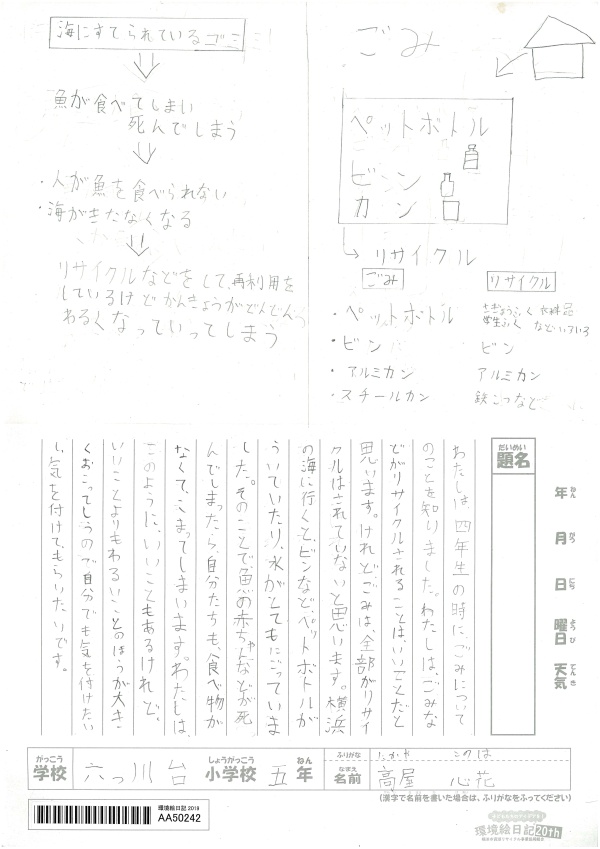 海にすてられているゴミ
魚が食べてしまい
死んでしまう
・人が魚を食べられない
・海がきたなくなる
リサイクルなどをして、再利用を
しているけどかんきょうがどんどん
わるくなっていってしまう
ごみ
ペットボトル
ビン
カン
リサイクル
ごみ
リサイクル
・ペットボトル
さぎょうふく 衣料品
学生ふく などいろいろ
・ビン
ビン
・アルミカン
アルミカン
・スチールカン
鉄こつなど
だいめい
題名
年 ねん
月 がつ
日 にち
曜日 ようび
天気 てんき
わたしは、四年生の時に、ごみについて
のことを知りました。わたしは、ごみな
どがリサイクルされることは、いいことだと
思います。けれどごみは、全部がリサイ
クルはされていないと思います。横浜
の海に行くと、ビンなど、ペットボトルが
ういていたり、水がとてもにごっていま
した。そのことで魚の赤ちゃんなどが死
んでしまったら、自分たちも、食べ物が
なくて、こまってしまいます。わたしは、
このように、いいこともあるけれど、
いいことよりもわるいことのほうが大き
くおこってしうので自分でも気を付けたい
し、気を付けてもらいたいです。
がっこう
学校
六っ川台
しょうがっこう
小学校
五
ねん
年
ふりがな
たかや このは
なまえ
名前
高屋 心花
(漢字で名前を書いた場合は、ふりがなをふってください)
環境絵日記 2019
AA50242
環境絵日記 20th